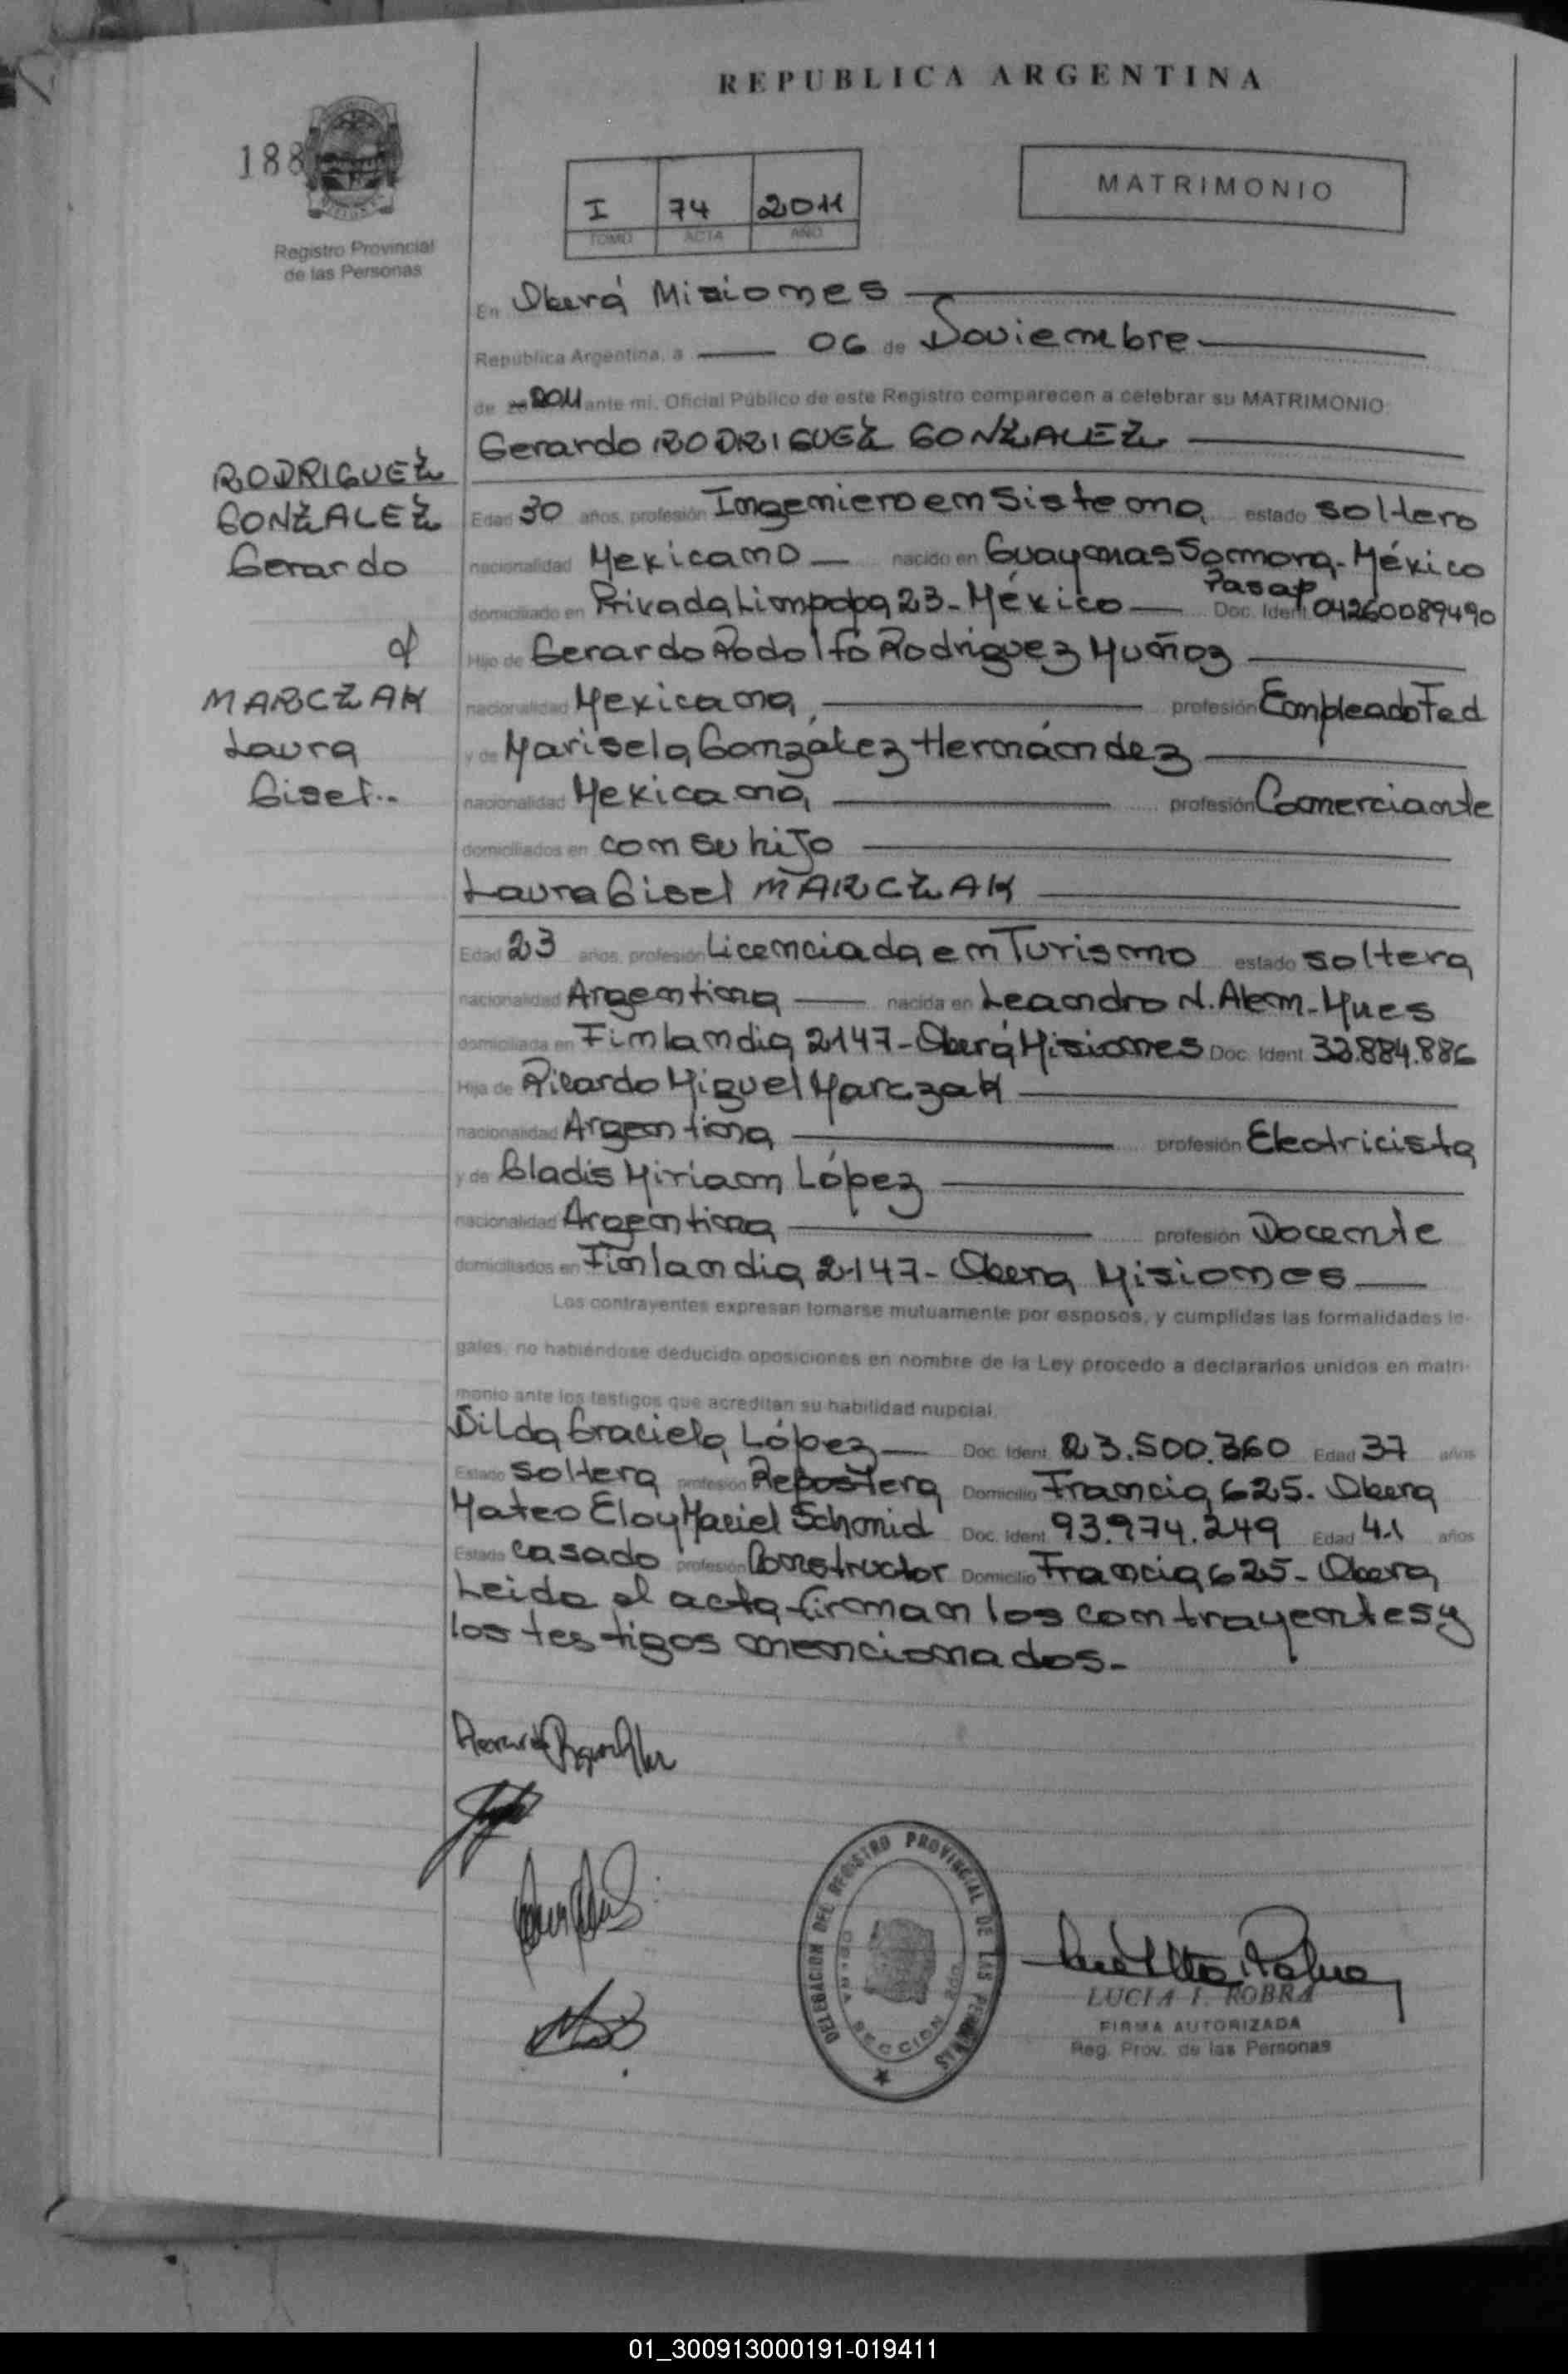 REPUBLICA ARGENTINA
188
Registro Provincial
de las Personas
I 74 2011
TOMO ACTA AÑO
MATRIMONIO
En Oberá Misiones
República Argentina, a 06 de Noviembre
de 2011 ante mi, Oficial Público de este Registro comparecen a celebrar su MATRIMONIO:
Gerardo RODRIGUEZ GONZALEZ
RODRIGUEZ
GONZALEZ
Gerardo
MARCZAK
Laura
Gisel..
Edad 30 años, profesión Ingeniero en Sistema estado soltero
nacionalidad Mexicano nacido en Guaymas Sonora-México
domiciliado en Privada Limpopo 23-México Doc. Ident. Pasap 04260089490
Hijo de Gerardo Rodolfo Rodriguez Muñoz
nacionalidad Mexicana, profesión Empleado Fed
y de Marisela González Hernández
nacionalidad Mexicana, profesión Comerciante
domiciliados en con su hijo
Laura Gisel MARCZAK
Edad 23 años, profesión Licenciada en Turismo estado soltera
nacionalidad Argentina nacida en Leandro N. Alem-Mnes
domiciliada en Finlandia 2147-Oberá Misiones Doc. Ident. 33.884.886
Hija de Ricardo Miguel Marczak
nacionalidad Argentina profesión Electricista
y de Gladis Miriam López
nacionalidad Argentina profesión Docente
domiciliados en Finlandia 2147- Obera Misiones
Los contrayentes expresan tomarse mutuamente por esposos, y cumplidas las formalidades le-
gales, no habiéndose deducido oposiciones en nombre de la Ley procedo a declararlos unidos en matri-
monio ante los testigos que acreditan su habilidad nupcial.
Nilda Graciela López Doc. Ident. 23.500.360 Edad 37 años
Estado soltera profesión Repostera Domicilio Francia 625. Obera
Mateo Eloy Maciel Schmid Doc. Ident. 93.974.249 Edad 41 años
Estado casado profesión Constructor Domicilio Francia 625- Obera
Leida el acta firman los contrayentes y
los testigos mencionados.-
DELEGACION DEL REGISTRO PROVINCIAL DE LAS PERSONAS
SECCION
LUCIA I. ROBRA
FIRMA AUTORIZADA
Reg. Prov. de las Personas
01_300913000191-019411